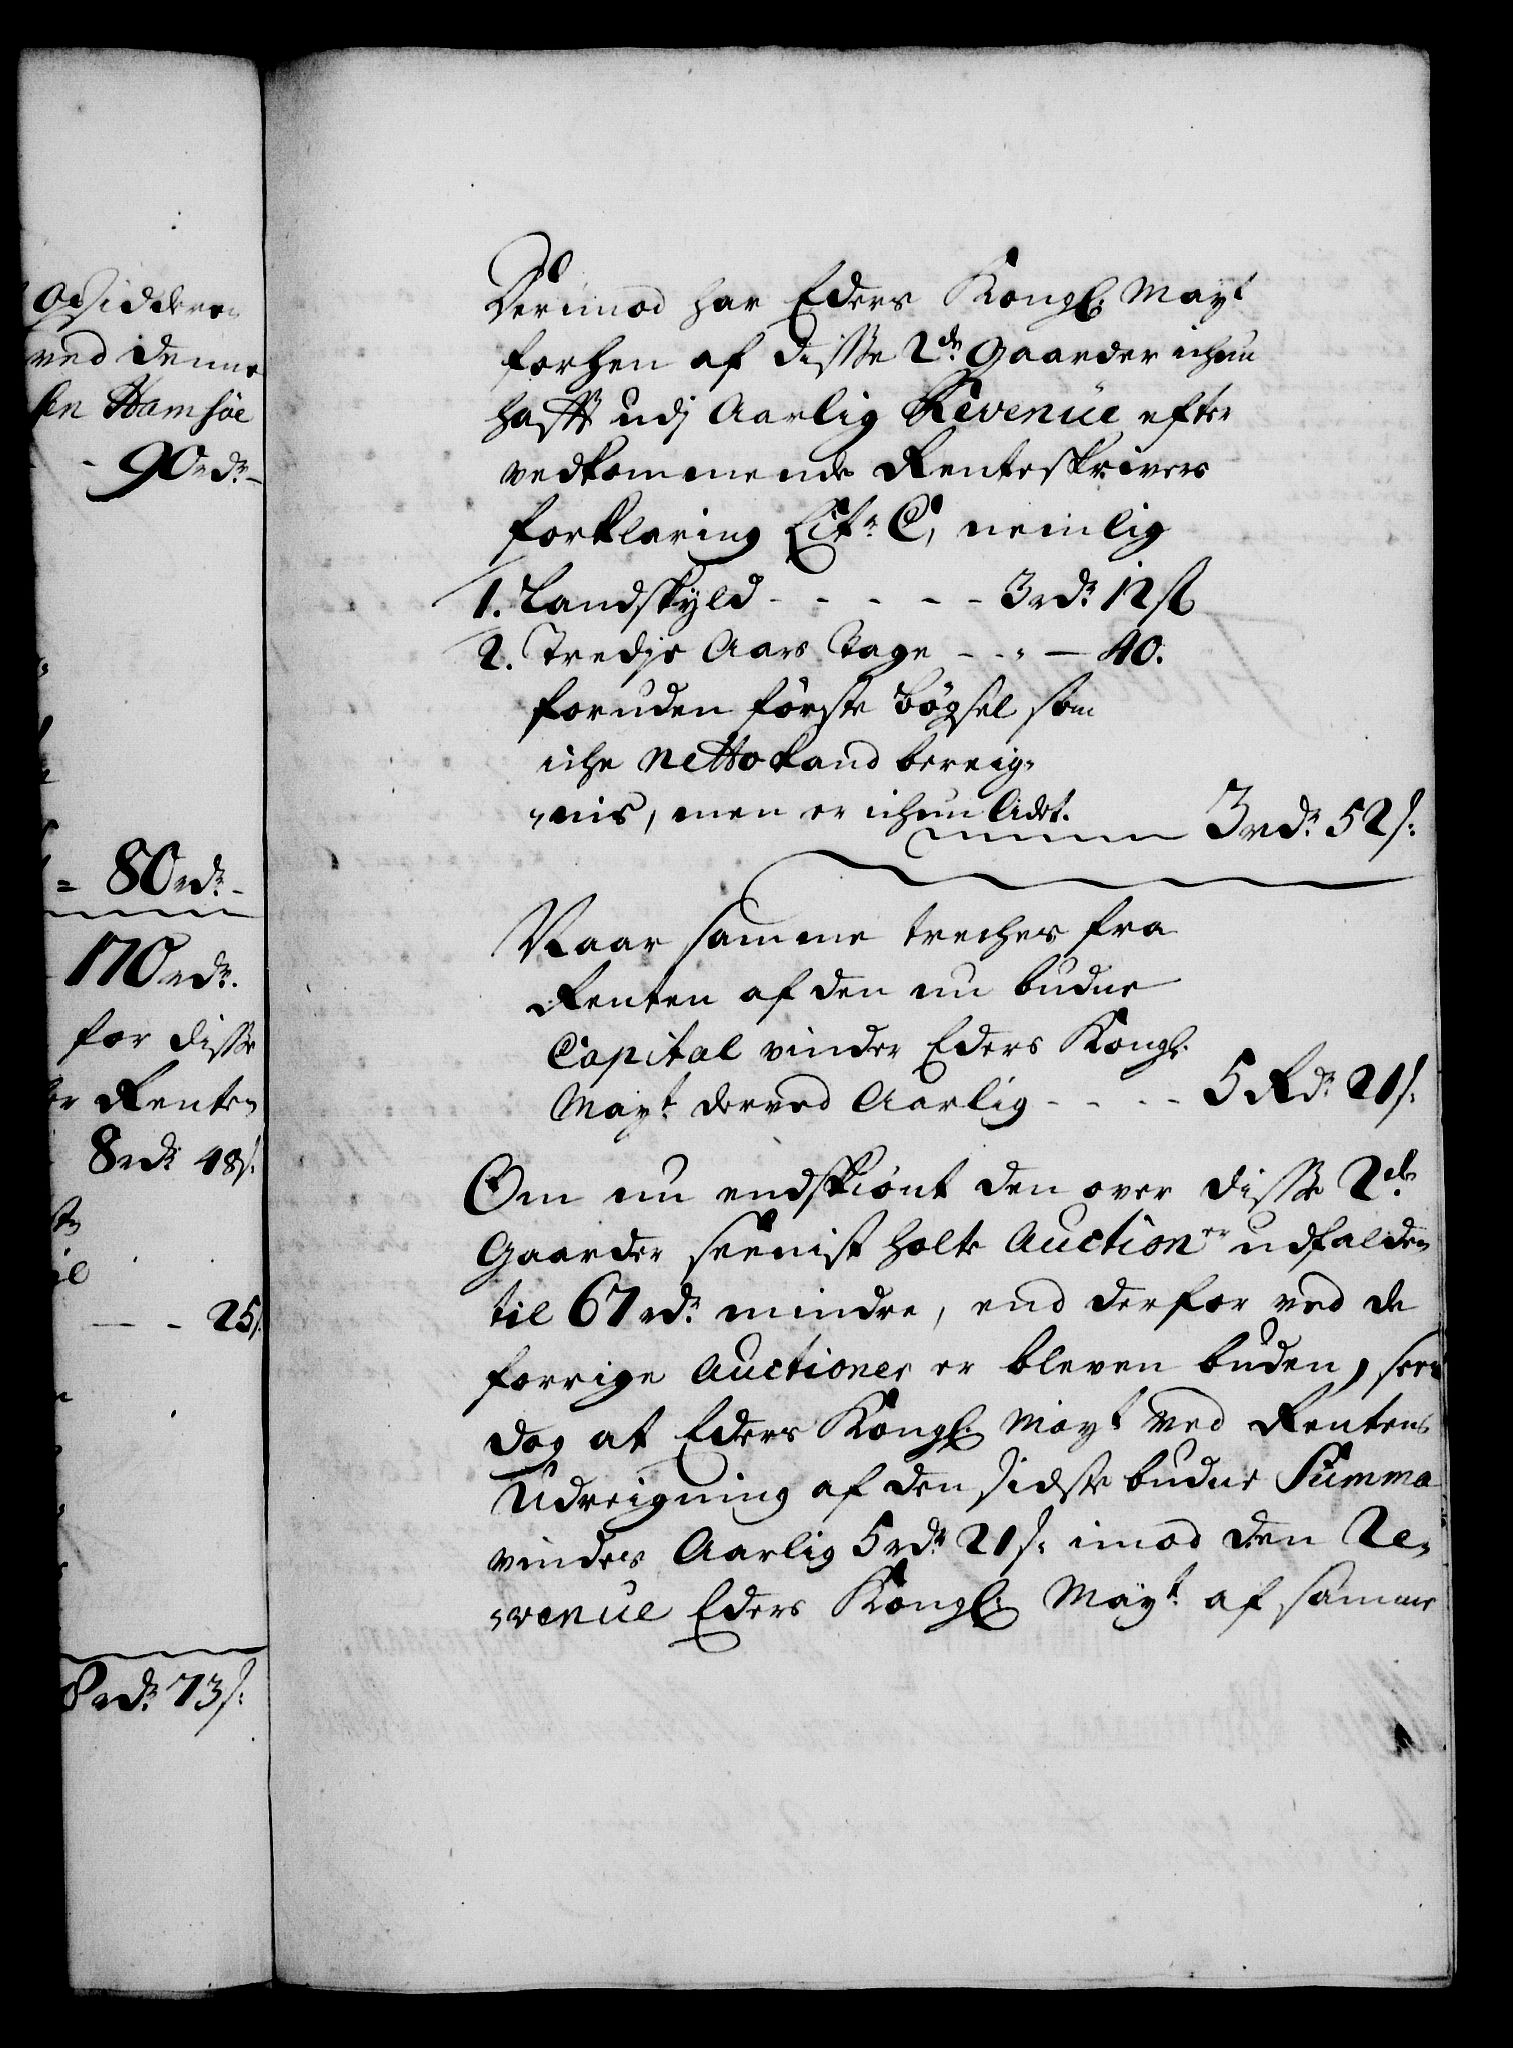 Opsidderen
ved denne
sen Hamsøe
- 90 rdr. -
= 80 rdr. -
170 rdr.
for disse
er Renten
8 rdr. 48 s.
- - - 25 s.
8 rdr. 73 s.
Derimod har Eders Kongl. Mayt
forhen af disse 2de Gaarder ichun
hafft udj Aarlig Revenüe efter
vedkommende Renteskrivers
forklaring Litr. C, nemlig
1. Landskyld - - - - - 3 rdr. 12 s
2. Tredje Aars Tage - - „ - 40.
foruden förste bögsel som
iche netto kand bereig-
-nis, men er ichun lidet.
3 rdr. 52 s.
Naar samme treches fra
Renten af den nu budne
Capital vinder Eders Kongl.
Mayt. derved Aarlig - - - - 5 Rdr. 21 s.
Om nu endskiönt den over disse 2de
Gaarder seenist holte Auction er udfalden
til 67 rdr. mindre, end derfor ved de
forrige Auctioner er bleven buden, sees
dog at Eders Kongl. Mayt ved Rentens
Udreigning af den sidste budne Summa
vinder Aarlig 5 rdr. 21 s. imod den Re-
-venue Eders Kongl. Mayt. af samme